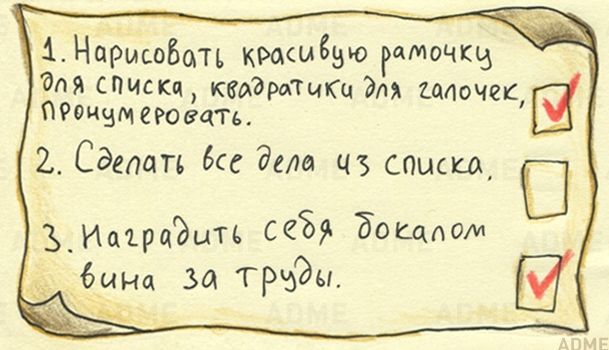 1. Нарисовать красивую рамочку
для списка, квадратики для галочек,
пронумеровать.
2. Сделать все дела из списка.
3. Наградить себя бокалом
вина за труды.
ADME